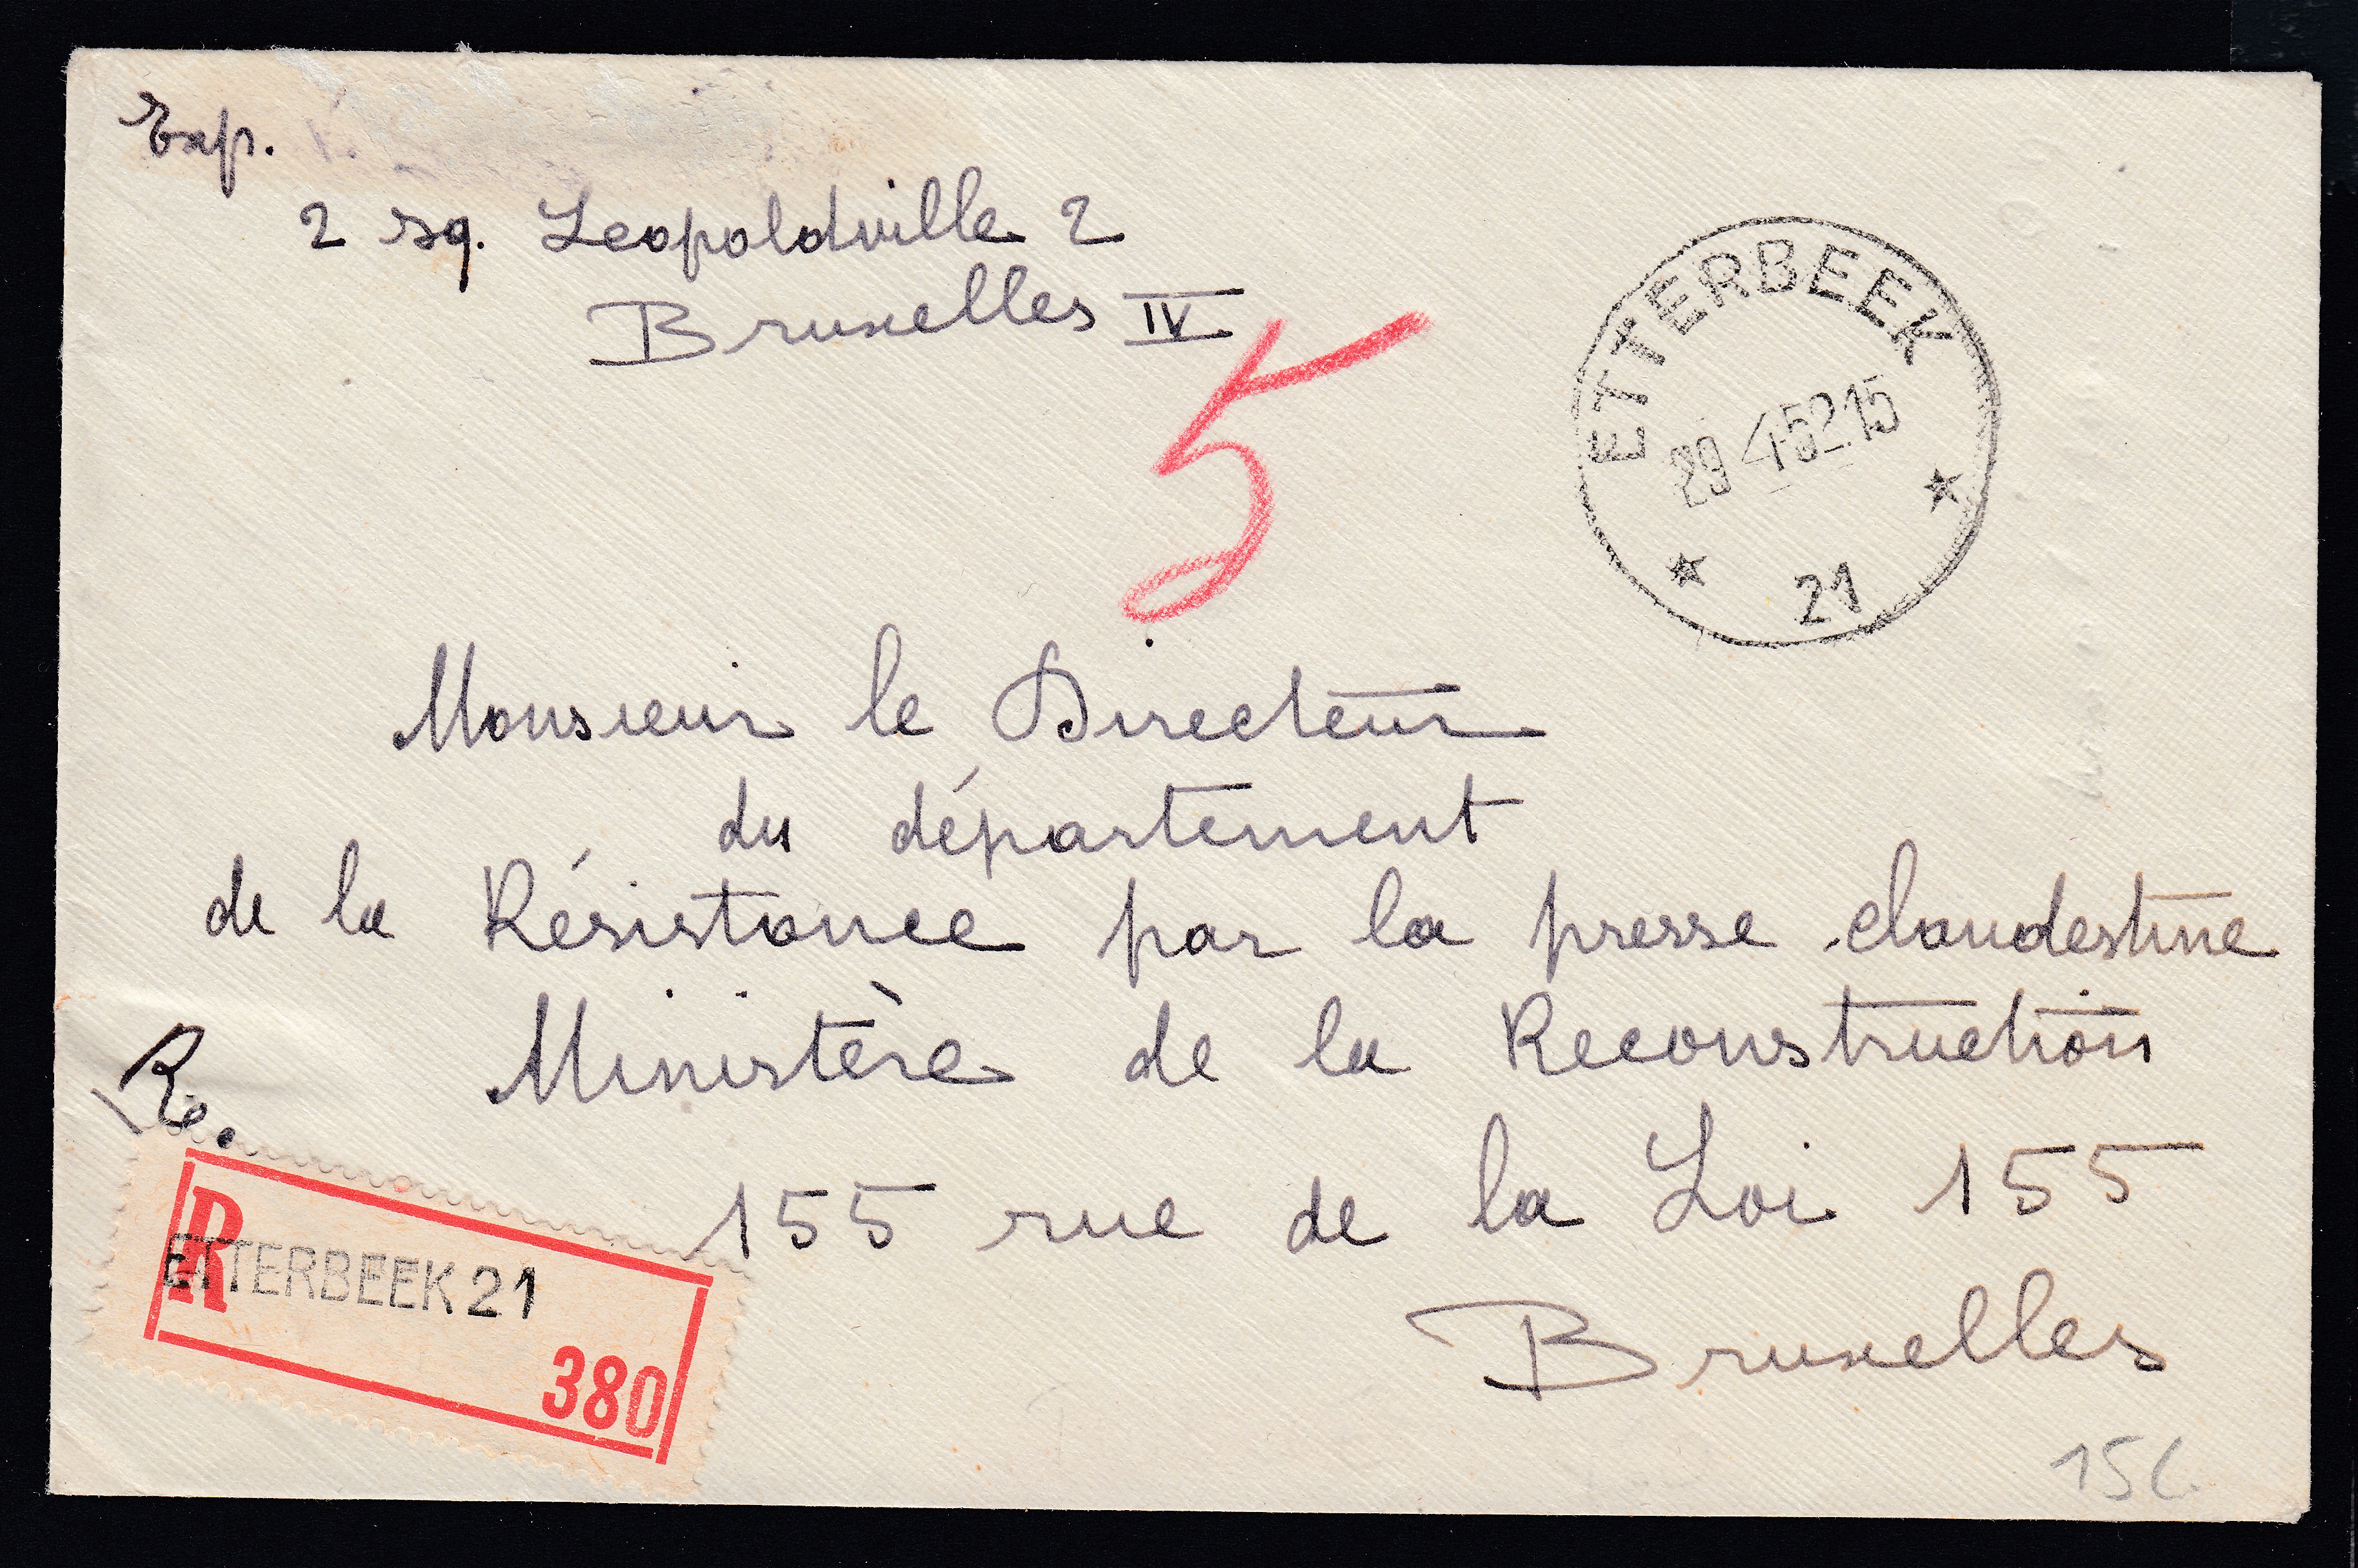 Exp.
2 sq. Leopoldville 2
Bruxelles IV
5
ETTERBEEK
29 -4-52.15
21
Monsieur le Directeur
du département
de la Résistance par la presse clandestine
Ministère de la Reconstruction
155 rue de la Loi 155
Bruxelles
R.
R
ETTERBEEK 21
380